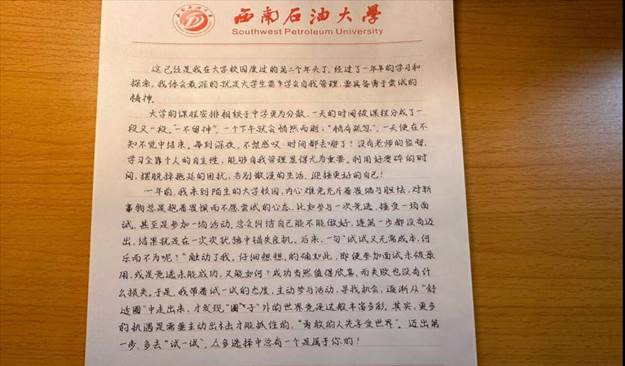 西南石油大学
Southwest Petroleum University
这已经是我在大学校园度过的第二个年头了，经过了一年的学习和
探索，我体会最深的就是大学生要学会自我管理，要具备勇于尝试的
精神。
大学的课程安排相较于中学更为分散，一天的时间被课程分成了一
段又一段。“一不留神”，一个下午就会悄然而逝；“稍有疏忽”，一天便在不
知不觉中结束。每到深夜，不禁感叹：时间都去哪了！没有老师的监督，
学习全靠个人的自主性，能够自我管理显得尤为重要。利用好零碎的时
间，摆脱掉拖延的困扰，告别散漫的生活，迎接更好的自己！
一年前，我来到陌生的大学校园，内心难免充斥着畏惧与胆怯，对新
事物总是抱着畏惧而不愿尝试的心态，比如参与一次竞选，接受一场面
试，甚至是参加一场活动，总会纠结自己能不能做好，连第一步都没有迈
出，结果就是在一次次犹豫中错失良机。后来，一句“试试又无需成本，何
乐而不为呢！”触动了我。仔细想想，的确如此，即使参加面试未被录
用，或是竞选未能成功，又能如何！成功当然值得欣喜，而失败也没有什
么损失。于是，我带着试一试的态度，主动参与活动，寻找机会，逐渐从“舒
适圈”中走出来，才发现，“圈子”外的世界竟是这般丰富多彩。其实，更多
的机遇是需要主动出击去才能抓住的，“勇敢的人先享受世界”。迈出第
一步，多去“试一试”，众多选择中总有一个是属于你的！